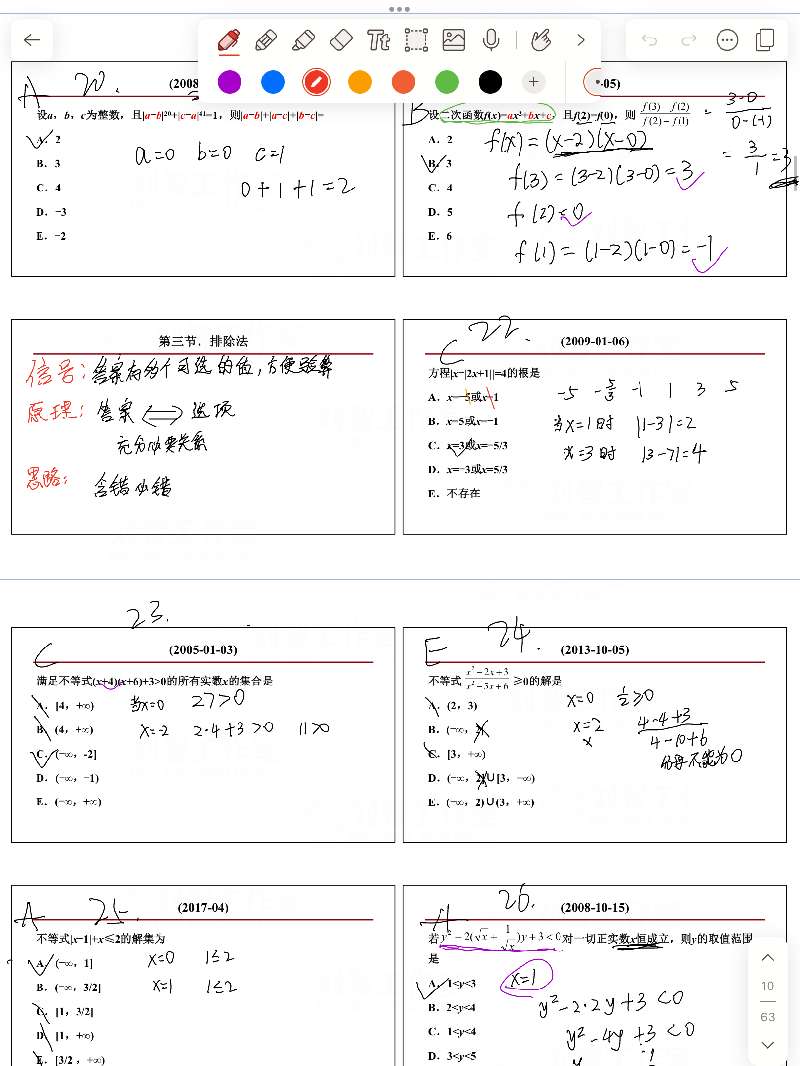 Tt
A 20.
(2008
设a，b，c为整数，且|a−b|²⁰+|c−a|⁴¹=1，则|a−b|+|a−c|+|b−c|=
A．2
B．3
C．4
D．−3
E．−2
a=0 b=0 c=1
0+1+1=2
-05)
B
设二次函数f(x)=ax²+bx+c，且f(2)=f(0)，则 f(3)−f(2) / f(2)−f(1) = 3-0 / 0-(-1)
= 3/1 =3
A．2
B．3
C．4
D．5
E．6
f(x)=(x-2)(x-0)
f(3)=(3-2)(3-0)=3
f(2)=0
f(1)=(1-2)(1-0)=-1
第三节．排除法
信号：答案有多个可选的值，方便验算
原理：答案 ⟺ 选项
充分必要关系
思略：含错必错
C 22.
(2009-01-06)
方程|x−|2x+1||=4的根是
A．x=−5或x=1
B．x=5或x=−1
C．x=3或x=−5/3
D．x=−3或x=5/3
E．不存在
-5 -5/3 -1 1 3 5
当x=1时 |1-3|=2
x=3时 |3-7|=4
C 23.
(2005-01-03)
满足不等式(x+4)(x+6)+3>0的所有实数x的集合是
A．[4，+∞)
B．(4，+∞)
C．(−∞，-2]
D．(−∞，−1)
E．(−∞，+∞)
当x=0 27>0
x=-2 2·4+3>0 11>0
E 24.
(2013-10-05)
不等式 x²−2x+3 / x²−5x+6 ≥0的解是
A．(2，3)
B．(−∞，2]
C．[3，+∞)
D．(−∞，2]∪[3，−∞)
E．(−∞，2)∪(3，+∞)
x=0 1/2≥0
x=2 4-4+3 / 4-10+6
x
分母不能为0
A 25.
(2017-04)
不等式|x−1|+x≤2的解集为
A．(−∞，1]
B．(−∞，3/2]
C．[1，3/2]
D．[1，+∞)
E．[3/2，+∞)
x=0 1≤2
x=1 1≤2
A 26.
(2008-10-15)
若y²−2(√x+1/√x)y+3<0对一切正实数x恒成立，则y的取值范围
是
A．1<y<3
B．2<y<4
C．1<y<4
D．3<y<5
x=1
y²-2·2y+3<0
y²-4y+3<0
10
63